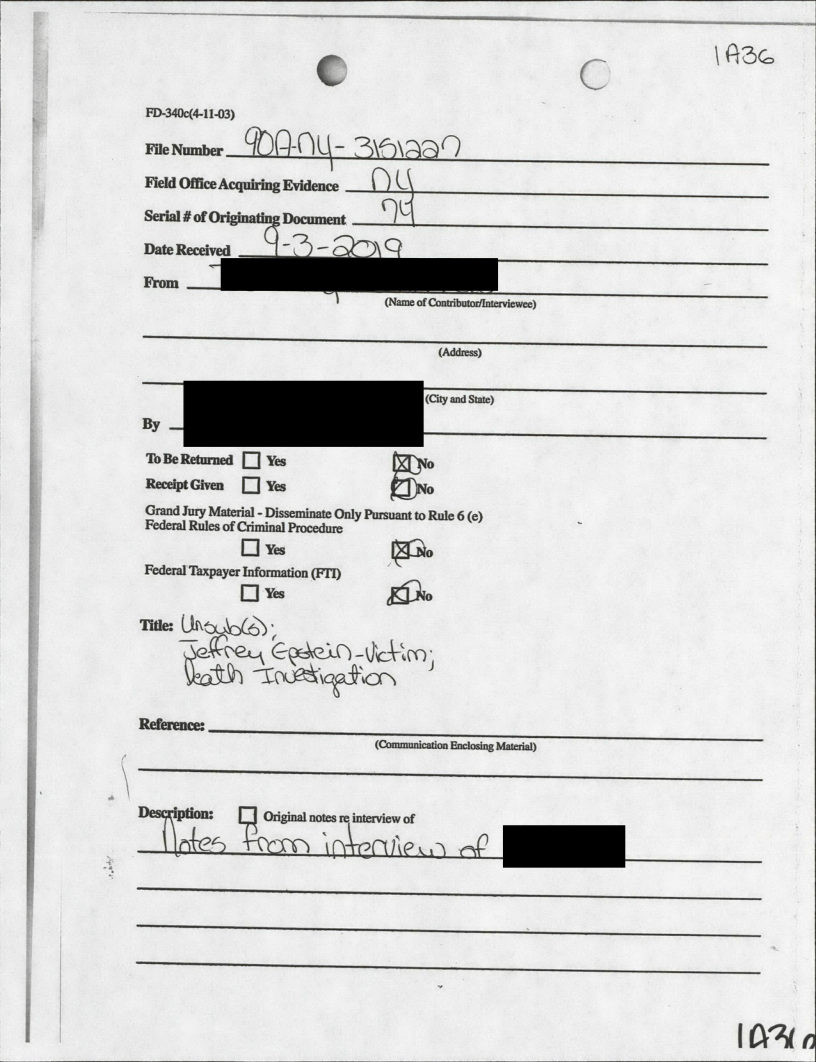 1A36
FD-340c(4-11-03)
File Number 90A-NY-3151227
Field Office Acquiring Evidence NY
Serial # of Originating Document 74
Date Received 9-3-2019
From
(Name of Contributor/Interviewee)
(Address)
(City and State)
By
To Be Returned Yes No
Receipt Given Yes No
Grand Jury Material - Disseminate Only Pursuant to Rule 6 (e)
Federal Rules of Criminal Procedure
Yes No
Federal Taxpayer Information (FTI)
Yes No
Title: Unsub(s);
Jeffrey Epstein-Victim;
Death Investigation
Reference:
(Communication Enclosing Material)
Description: Original notes re interview of
Notes from interview of
1A36